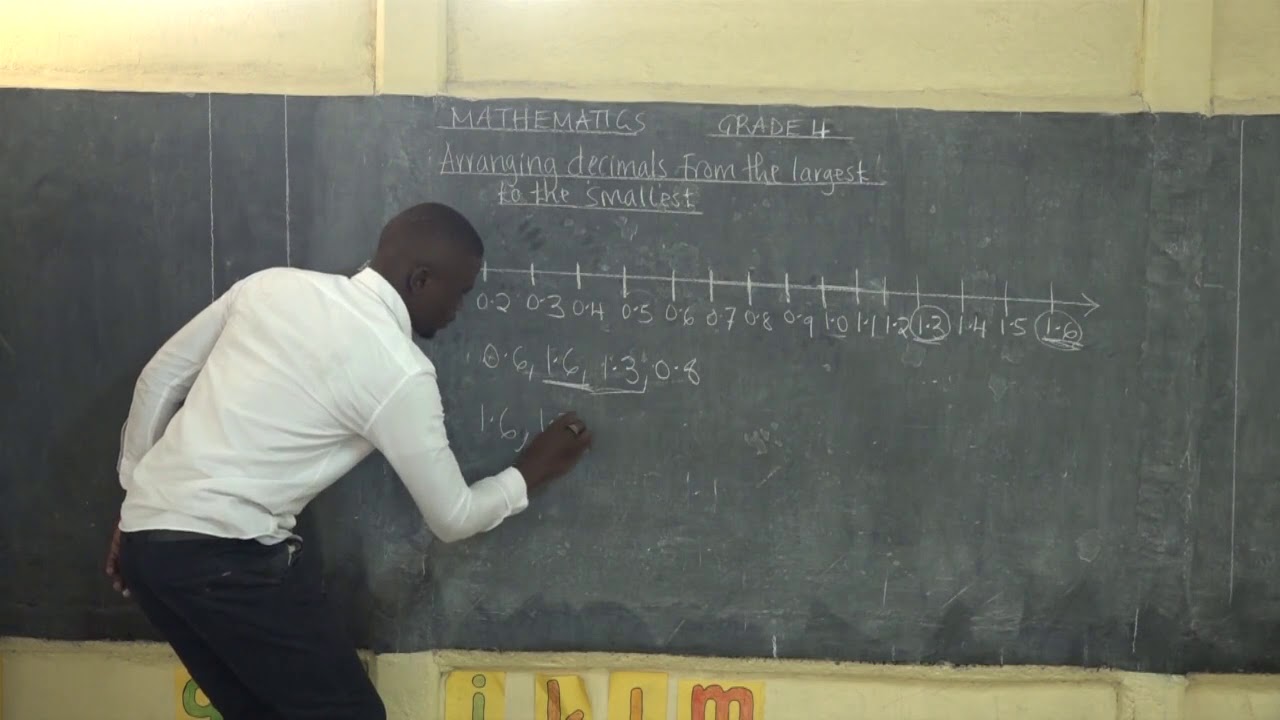 MATHEMATICS GRADE 4
Arranging decimals from the largest
to the smallest
0.2 0.3 0.4 0.5 0.6 0.7 0.8 0.9 1.0 1.1 1.2 1.3 1.4 1.5 1.6
0.6, 1.6, 1.3, 0.8
1.6, 1.
i k l m